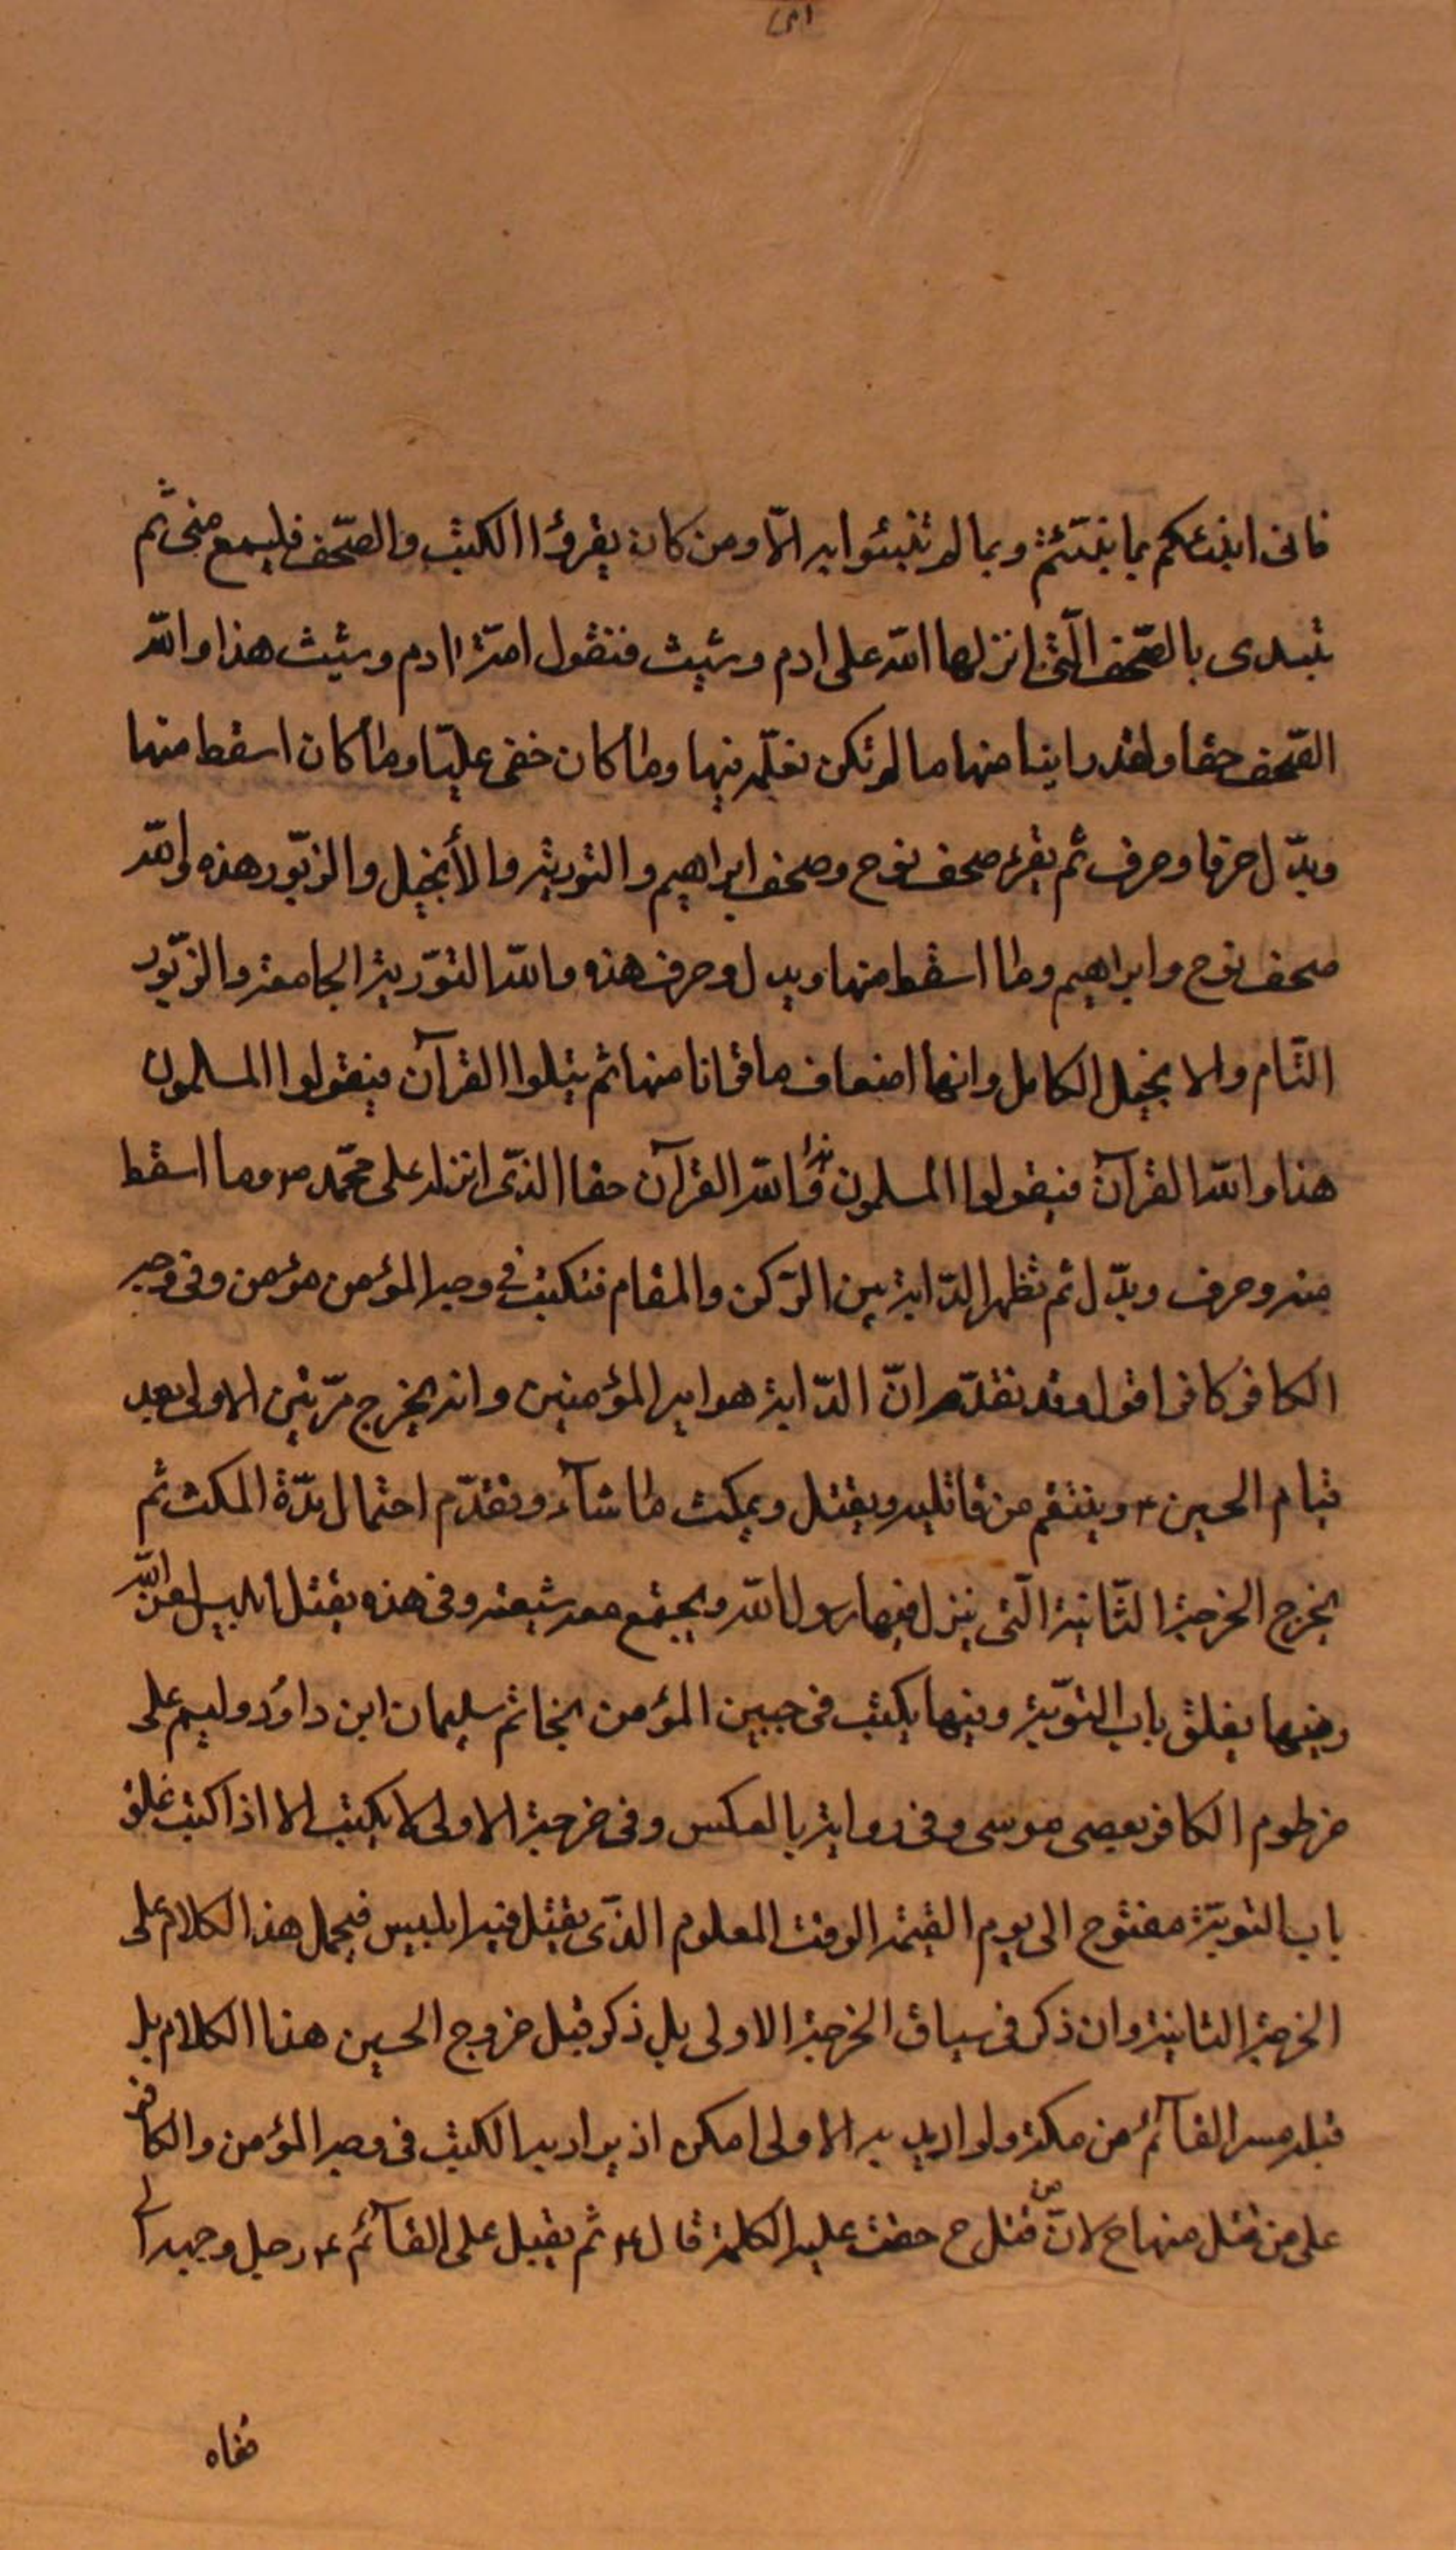 فانى انبئكم بما نبئتم وبما لم تنبئوا به الّا ومن كان يقرؤا الكتب والصّحف فليسمع منى ثم
تبدى بالصّحف الّتى انزلها اللّه على ادم وشيث فتقول امّة ادم وشيث هذا واللّه
الصّحف حقا ولقد راينا منها ما لم نكن نعلّمه فيها وما كان خفى عليّنا وما كان اسقط منها
وبدّل حرفا وحرف ثم يقرء صحف نوح وصحف ابراهيم والتورية والأنجيل والزبّور هذه واللّه
صحف نوح وابراهيم وما اسقط منها وبدل وحرف هذه واللّه التوّرية الجامعة والزبّور
التّام والانجيل الكامل وانها اضعاف ما قرانا منها ثم يتلوا القرآن فيقولوا المسلمون
هذا واللّه القرآن فيقولوا المسلمون هذا واللّه القرآن حقا الذّى انزله على محمّد ص وما اسقط
منه وحرف وبدّل ثم تظهر الدّابة بين الرّكن والمقام فتكتب فى وجه المؤمن مؤمن وفى وجه
الكافر كافر اقول وقد تقدّم انّ الدّابة هو امير المؤمنين وانه يخرج مرّتين الاولى بعد
قيام الحسين ع وينتقم من قاتليه ويقتل ويمكث ما شآء وتقدّم احتمال مدّة المكث ثم
يخرج الخرجة الثّانية الّتى ينزل فيها رسول اللّه ويجتمع معه شيعته وفى هذه يقتل ابليس لعن اللّه
وفيها يغلق باب التوّبة وفيها يكتب فى جبين المؤمن بخاتم سليمان ابن داوُد وليسم على
خرطوم الكافر بعصى موسى وفى رواية بالعكس وفى خرجة الاولى لا يكتب الا اذا كتب غلق
باب التوبّة مفتوح الى يوم القيمة الوقت المعلوم الذّى يقتل فيه ابليس فيحمل هذا الكلام على
الخرجة الثانية وان ذكر فى سياق الخرجة الاولى بل ذكر قبل خروج الحسين هذا الكلام بل
قبل مسير القآئم من مكة ولو اريد به الاولى امكن اذ يراد به الكتب فى وجه المؤمن والكافر
على من قتل منها ح لانّ من قتل ح حقت عليه الكلمة قال ع ثم يقبل على القآئم ع رجل وجهه الى
قفاه